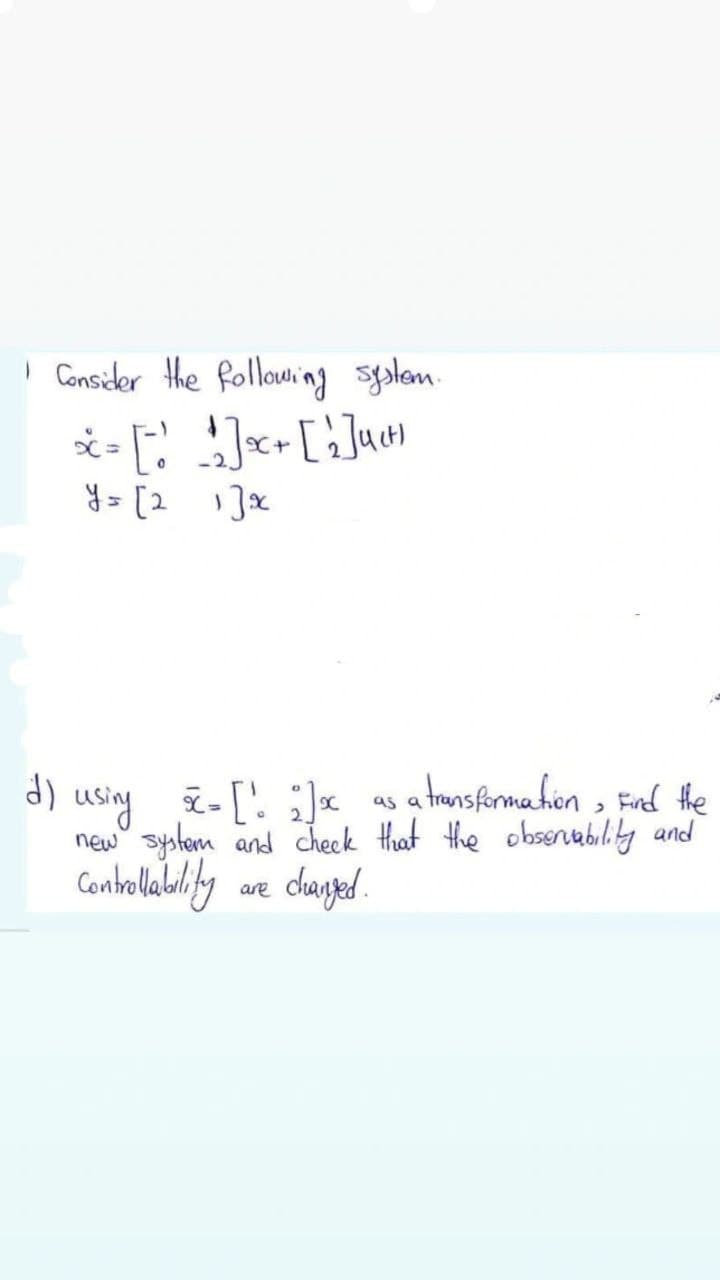 ) Consider the following system.
ẋ = [-1 1; 0 -2]x + [1; 2]u(t)
y = [2 1]x
d) using x̄ = [1 0; 0 2]x as a transformation, Find the
new system and check that the observability and
Controllability are changed.